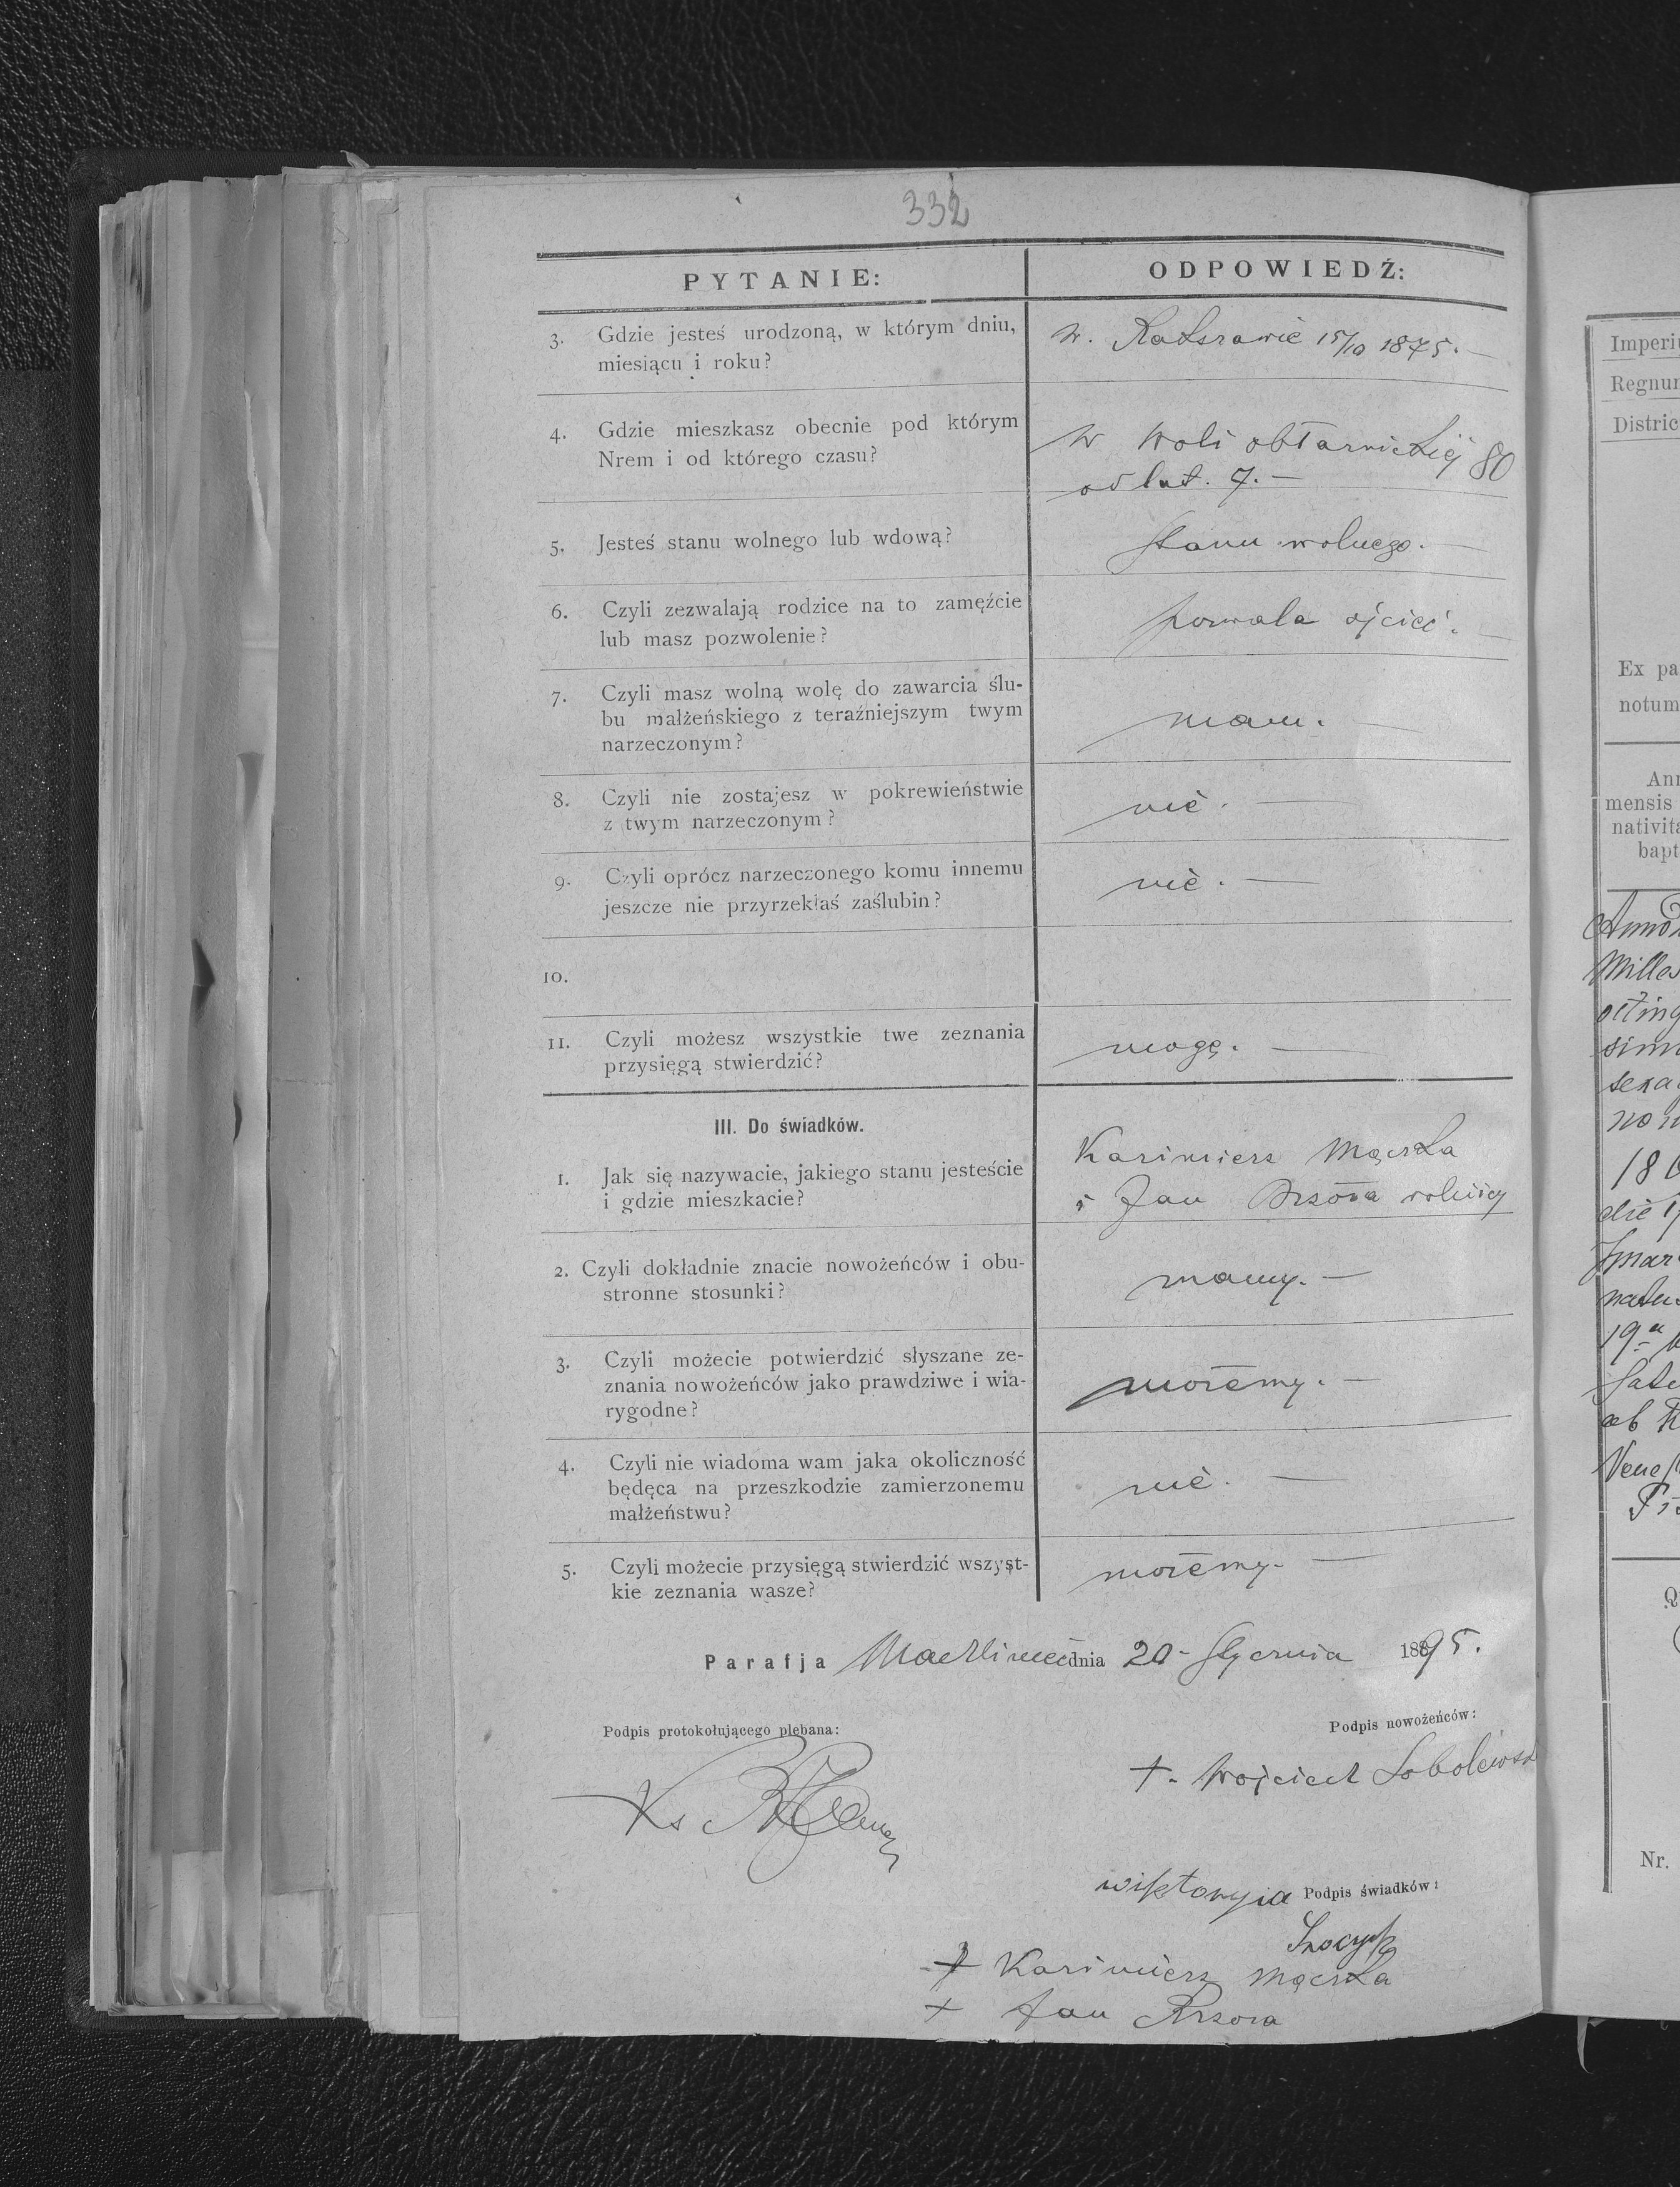 332
PYTANIE:
ODPOWIEDŹ:
3. Gdzie jesteś urodzoną, w którym dniu,
miesiącu i roku?
w. 15/10 1875. —
4. Gdzie mieszkasz obecnie pod którym
Nrem i od którego czasu?
w Woli obłaznickiej 80
od lat. 7. —
5. Jesteś stanu wolnego lub wdową?
stanu wolnego. —
6. Czyli zezwalają rodzice na to zamęźcie
lub masz pozwolenie?
pozwala ojciec. —
7. Czyli masz wolną wolę do zawarcia ślu-
bu małżeńskiego z teraźniejszym twym
narzeczonym?
mam. —
8. Czyli nie zostajesz w pokrewieństwie
z twym narzeczonym?
nie. —
9. Czyli oprócz narzeczonego komu innemu
jeszcze nie przyrzekłaś zaślubin?
nie. —
10.
11. Czyli możesz wszystkie twe zeznania
przysięgą stwierdzić?
mogę. —
III. Do świadków.
1. Jak się nazywacie, jakiego stanu jesteście
i gdzie mieszkacie?
Kazimierz Mączka
i Jan Brzoza rolnicy
2. Czyli dokładnie znacie nowożeńców i obu-
stronne stosunki?
znamy. —
3. Czyli możecie potwierdzić słyszane ze-
znania nowożeńców jako prawdziwe i wia-
rygodne?
możemy. —
4. Czyli nie wiadoma wam jaka okoliczność
będęca na przeszkodzie zamierzonemu
małżeństwu?
nie. —
5. Czyli możecie przysięgą stwierdzić wszyst-
kie zeznania wasze?
możemy. —
Parafja Machliniec dnia 20 Stycznia 1895.
Podpis protokołującego plebana:
Podpis nowożeńców:
+. Wojciech Sobolewsk
Ks
wiktoryia
Podpis świadków:
+ Kazimierz Mączka
+ Jan Brzoza
Imperi
Regnur
Distric
Ex pa
notum
Ann
mensis
nativita
bapt
Anno
Milles
octing
simo
sexa
18
die
mar
natu
19
ab
Nr.